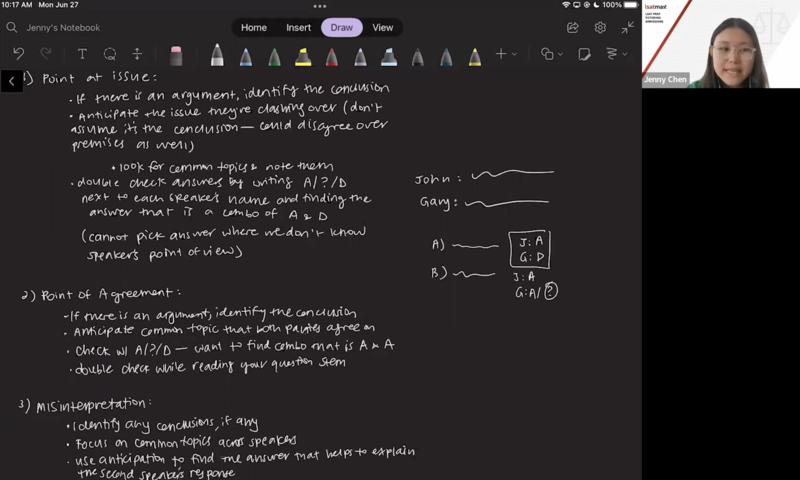 10:17 AM Mon Jun 27
100%
Jenny's Notebook
Home Insert Draw View
1) Point at issue:
• If there is an argument, identify the conclusion
• Anticipate the issue they're clashing over (don't
assume it's the conclusion — could disagree over
premises as well)
• look for common topics & note them
• double check answers by writing A/?/D
next to each speaker's name and finding the
answer that is a combo of A & D
(cannot pick answer where we don't know
speaker's point of view)
John:
Gary:
A)
J: A
G: D
B)
J: A
G: A/?
2) Point of Agreement:
- If there is an argument, identify the conclusion
• Anticipate common topic that both parties agree on
• Check w/ A/?/D — want to find combo that is A & A
• double check while reading your question stem
3) Misinterpretation:
• Identify any conclusions, if any
• Focus on common topics across speakers
• use anticipation to find the answer that helps to explain
the second speaker's response
lsatmax
LSAT PREP
TUTORING
ADMISSIONS
Jenny Chen